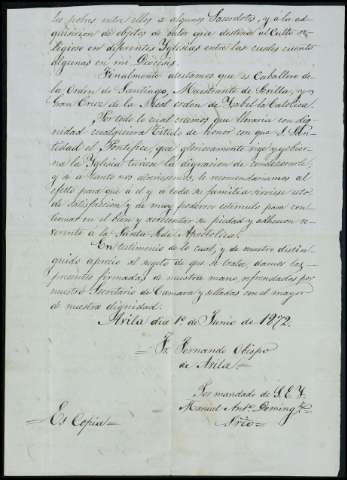 los pobres entre ellos a algunos Sacerdotes, y a la ad-
quisicion de objetos de valor que destina al Culto re-
ligioso en diferentes Yglesias entre las cuales cuento
algunas en mi Diócesis.
Finalmente declaramos que es Caballero de
la Orden de Santiago, Maestrante de Sevilla, y
Gran Cruz de la Real orden de Ysabel la Catolica.
Por todo lo cual creemos que llevaria con dig-
nidad cualquiera Titulo de honor con que S. San-
tidad el Pontifice, que gloriosamente rige y gobier-
na la Yglesia tuviese la dignacion de condecorarle,
y a tanto nos atrevemos, le recomendariamos al
efecto para que a el y a toda su familia sirviese esto
de satisfaccion y de muy poderoso estimulo para con-
tinuar en el bien y acrecentar su piedad y adhesion re-
verente a la Santa Sede Apostolica.
En testimonio de lo cual, y de nuestro distin-
guido aprecio al sugeto de que se trata, damos las
presentes firmadas de nuestra mano, refrendadas por
nuestro Secretario de Camara y selladas con el mayor
de nuestra dignidad.
Avila dia 1º de Junio de 1872.
Fr. Fernando Obispo
de Avila
Por mandado de S. E. Y.
Manuel Antº Doming
Srio
Es Copia